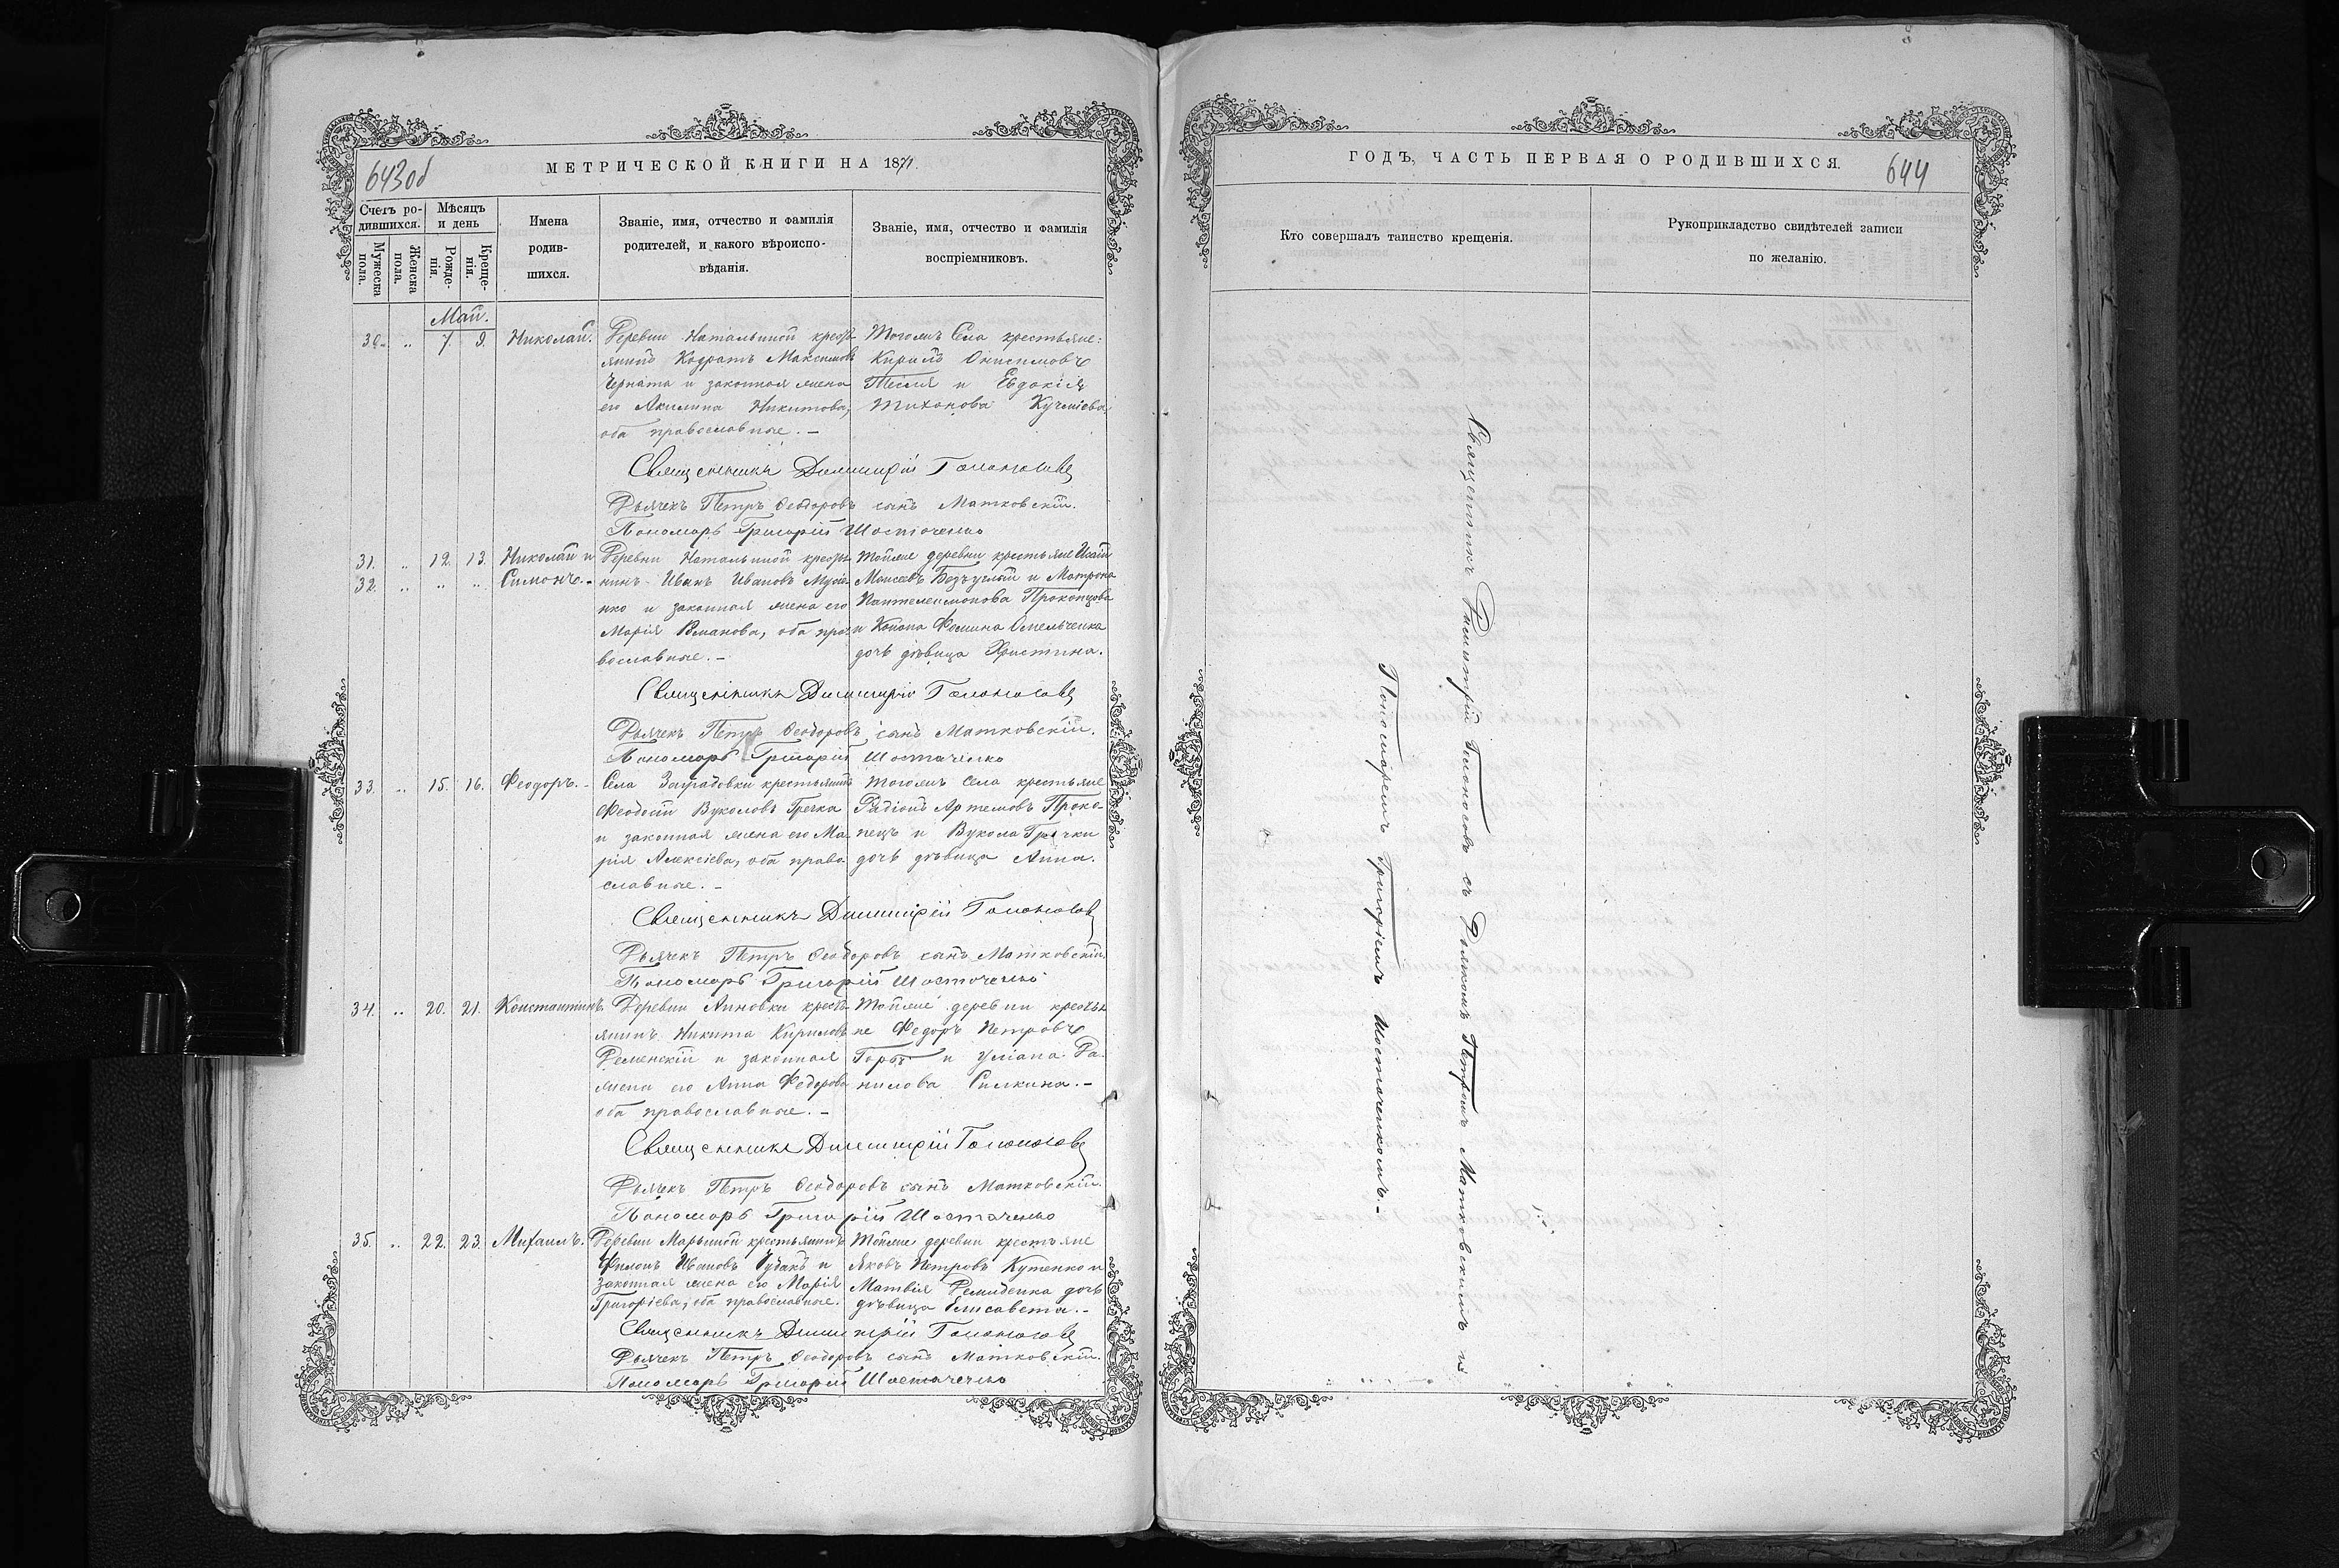 643об
МЕТРИЧЕСКОЙ КНИГИ НА 1871.
Счетъ родившихся.
Мужеска пола.
Женска пола.
Мѣсяцъ и день
Рожденія.
Крещенія.
Имена родившихся.
Званіе, имя, отчество и фамилія родителей, и какого вѣроисповѣданія.
Званіе, имя, отчество и фамилія воспріемниковъ.
Май.
30. „ 7. 9. Николай.
Деревни Натальиной кресть-
янинъ Кодратъ Максимовъ
Черната и законная жена
его Акилина Никитова,
оба православные. –
Тогожъ Села крестьяне:
Кирилъ Онисимовъ
и Евдокія
Тихонова
Священникъ Димитрій Голоносовъ
Дьячекъ Петръ Ѳеодоровъ сынъ Матковскій.
Пономарь Григорій Шостаченко
31. „ 12. 13. Николай и
32. „ „ „ Симонъ. –
Деревни Натальиной кресть-
нинъ Иванъ Ивановъ
и законная жена его
Марія Романова, оба пра-
вославные. –
Тойже деревни крестьяне Исай
Моисеевъ Безъуглый и Матрона
Пантелеимонова Прокопцова
и Конона Фомина Омельченка
дочь дѣвица Христина.
Священникъ Димитрій Голоносовъ
Дьячекъ Петръ Ѳеодоровъ сынъ Матковскій.
Пономарь Григорій Шостаченко
33. „ 15. 16. Феодоръ. –
Села Заградовки крестьянинъ
Феодосій Вуколовъ Гречка
и законная жена его Ма-
рія Алексіева, оба право-
славные. –
Тогожъ села крестьяне
Радіонъ Артемовъ Проко-
пецъ и Вукола Гречки
дочь дѣвица Анна.
Священникъ Димитрій Голоносовъ
Дьячекъ Петръ Ѳеодоровъ сынъ Матковскій.
Пономарь Григорій Шостаченко
34. „ 20. 21. Константинъ.
Деревни Анновки кресть-
янинъ Никита Кириловъ
Деменскій и законная
жена его Анна Федорова
оба православные. –
Тойже деревни крестья
не Федоръ Петровъ
и Уліана Да-
нилова Силкина. –
Священникъ Димитрій Голоносовъ
Дьячекъ Петръ Ѳеодоровъ сынъ Матковскій.
Пономарь Григорій Шостаченко
35. „ 22. 23. Михаилъ.
Деревни Марьиной крестьянинъ
Филонъ Ивановъ и
законная жена его Марія
Григоріева, оба православные.
Тойже деревни крестьяне
Яковъ Петровъ Кутенко и
Матвія Демиденка дочь
дѣвица Елисавета. –
Священникъ Димитрій Голоносовъ
Дьячекъ Петръ Ѳеодоровъ сынъ Матковскій.
Пономарь Григорій Шостаченко
ГОДЪ, ЧАСТЬ ПЕРВАЯ О РОДИВШИХСЯ.
644
Кто совершалъ таинство крещенія.
Рукоприкладство свидѣтелей записи
по желанію.
Священникъ Димитрій Голоносовъ съ Дьячкомъ Петромъ Матковскимъ и
Пономаремъ Григоріемъ Шостаченкомъ. –